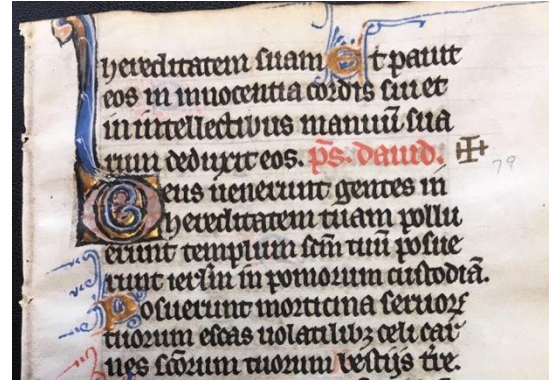 hereditatem suam Et pauit
eos in innocentia cordis sui et
in intellectibus manuū sua
rum deduxit eos. p̄s. dauid. 79
Deus uenerunt gentes in
hereditatem tuam pollu
erunt templum sc̄m tuū posue
runt ierl̄m in pomorum custodiā.
Posuerunt morticina seruoꝝ
tuorum escas uolatilibꝫ celi car
nes sc̄orum tuorum bestijs tr̄e.